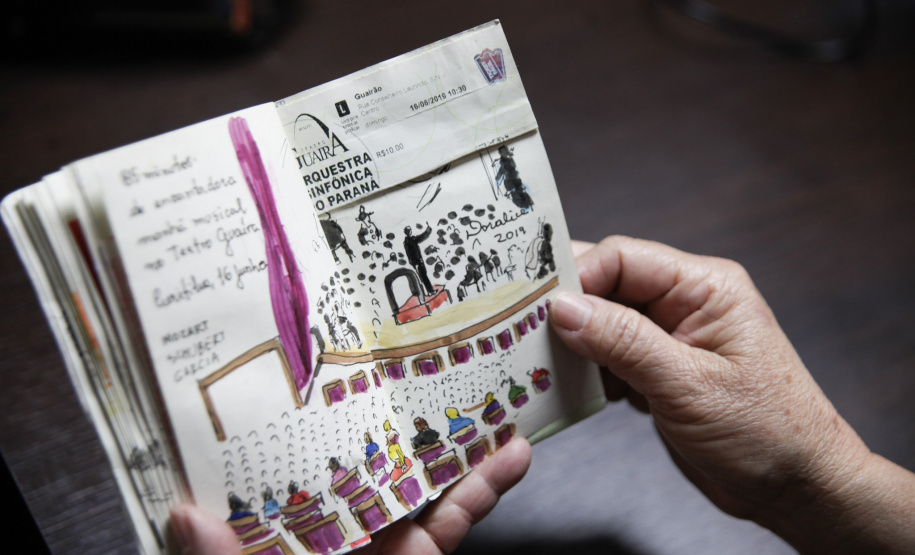 85 minutos
de encantadora
manhã musical
no Teatro Guaíra
Curitiba, 16 junho
MOZART
SCHUBERT
GARCIA
Guairão
Rua Conselheiro Laurindo, S/n
Centro
16/06/2019 10:30
domingo
L
R$10,00
TEATRO
GUAÍRA
RQUESTRA
SINFÔNICA
O PARANÁ
Doralice
2019